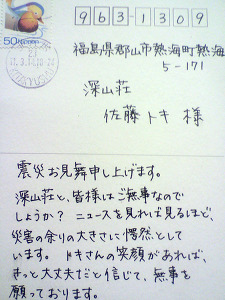 50 NIPPON
963-1309
福島県郡山市熱海町熱海
5-171
深山荘
佐藤トキ 様
震災お見舞申し上げます。
深山荘と、皆様はご無事なので
しょうか? ニュースを見れば見るほど、
災害の余りの大きさに愕然として
います。トキさんの笑顔があれば、
きっと大丈夫だと信じて、無事を
願っております。